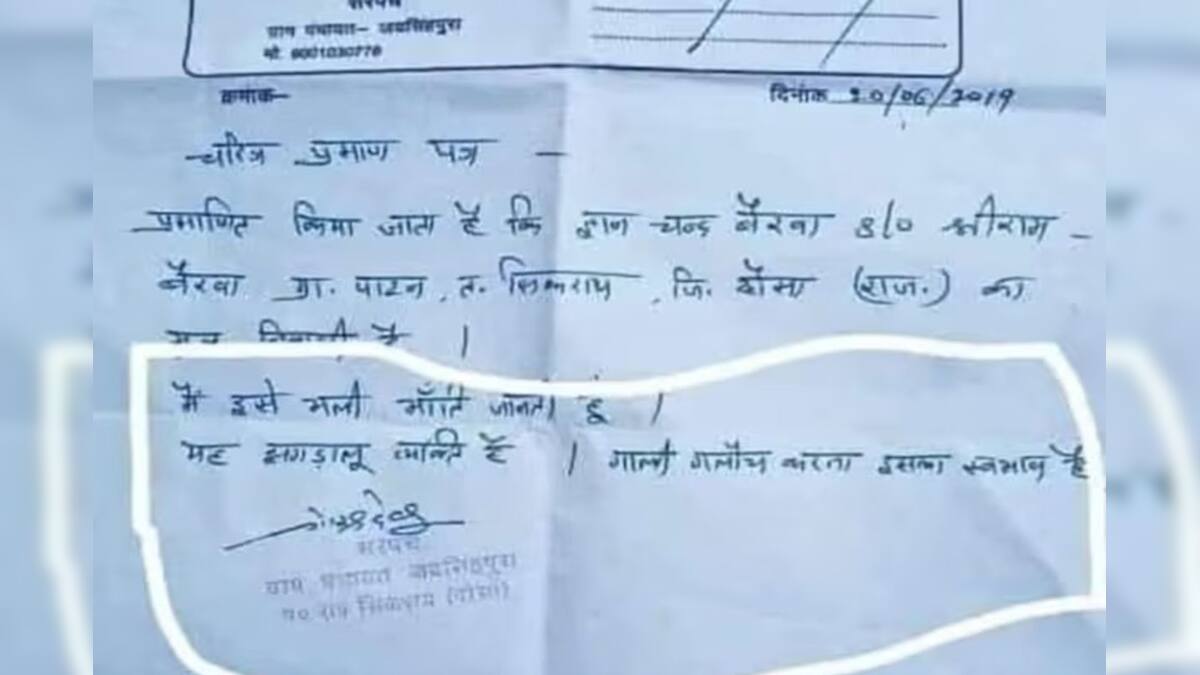 सरपंच
ग्राम पंचायत- जयसिंहपुरा
मो. 9001030779
क्रमांक-
दिनांक 20/06/2019
चरित्र प्रमाण पत्र -
प्रमाणित किया जाता है कि ज्ञान चन्द बैरवा S/o श्रीराम -
बैरवा ग्रा. पाटन, त. सिकराय, जि. दौसा (राज.) का
मूल निवासी है ।
मैं इसे भली भाँति जानती हूं ।
यह झगड़ालू व्यक्ति है । गाली गलौच करना इसका स्वभाव है
सरपंच
ग्राम पंचायत जयसिंहपुरा
पं० स० सिकराय (दौसा)